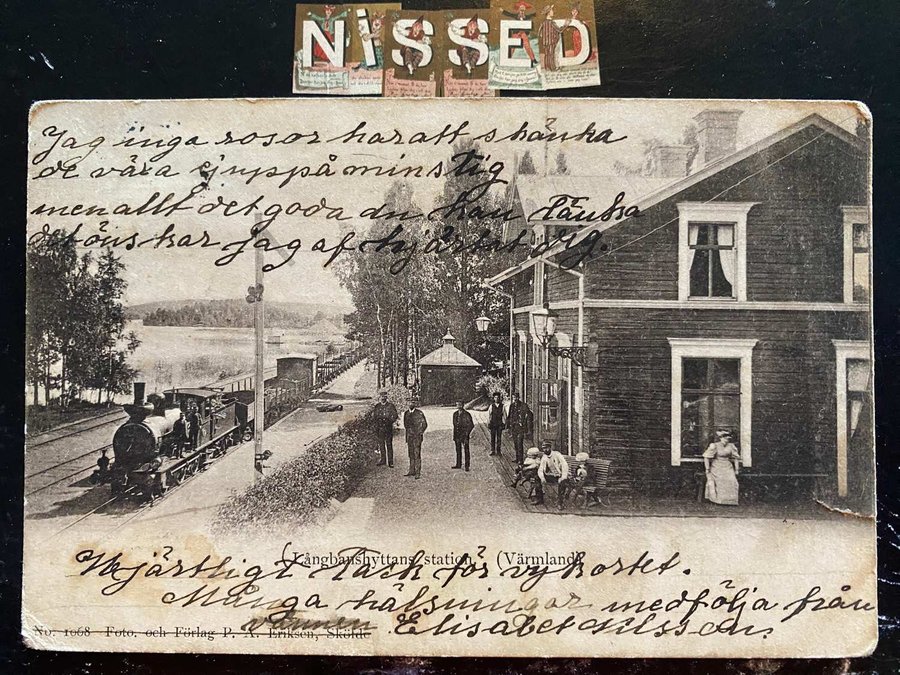 NISSED
Jag inga rosor har att skänka
de växa ej uppå min stig
men allt det goda du kan tänka
det önskar jag af hjärtat dig.
Långbanshyttans station (Värmland)
Hjärtligt Tack för vykortet.
Många hälsningar medfölja från
vännen Elisabet Nilsson.
No. 1068 Foto. och Förlag P. A. Eriksen, Skölde